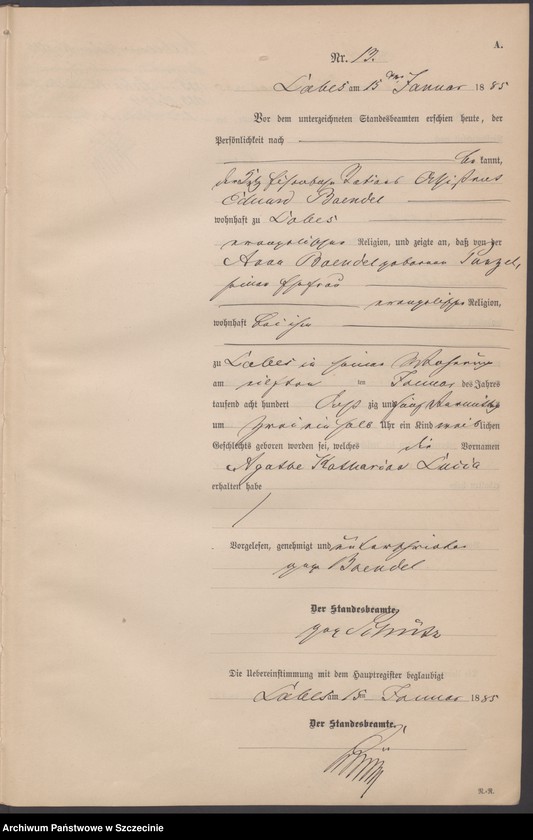 A.
Nr. 13.
Labes am 15 ten Januar 1885
Vor dem unterzeichneten Standesbeamten erschien heute, der
Persönlichkeit nach
be kannt,
der Eisenbahn Stations Assistent
Eduard Baendel
wohnhaft zu Labes
evangelischer Religion, und zeigte an, daß von der
Anna Baendel geborenen
seiner Ehefrau
evangelischer Religion,
wohnhaft bei ihm
zu Labes in seiner Wohnung
am elften ten Januar des Jahres
tausend acht hundert acht zig und fünf Vormittags
um zwei ein halb Uhr ein Kind weiblichen
Geschlechts geboren worden sei, welches die Vornamen
Agathe Katharina Lucia
erhalten habe
Vorgelesen, genehmigt und unterschrieben
gez Baendel
Der Standesbeamte.
gez
Die Uebereinstimmung mit dem Hauptregister beglaubigt
Labes am 15 ten Januar 1885
Der Standesbeamte.
R.-R.
Archiwum Państwowe w Szczecinie